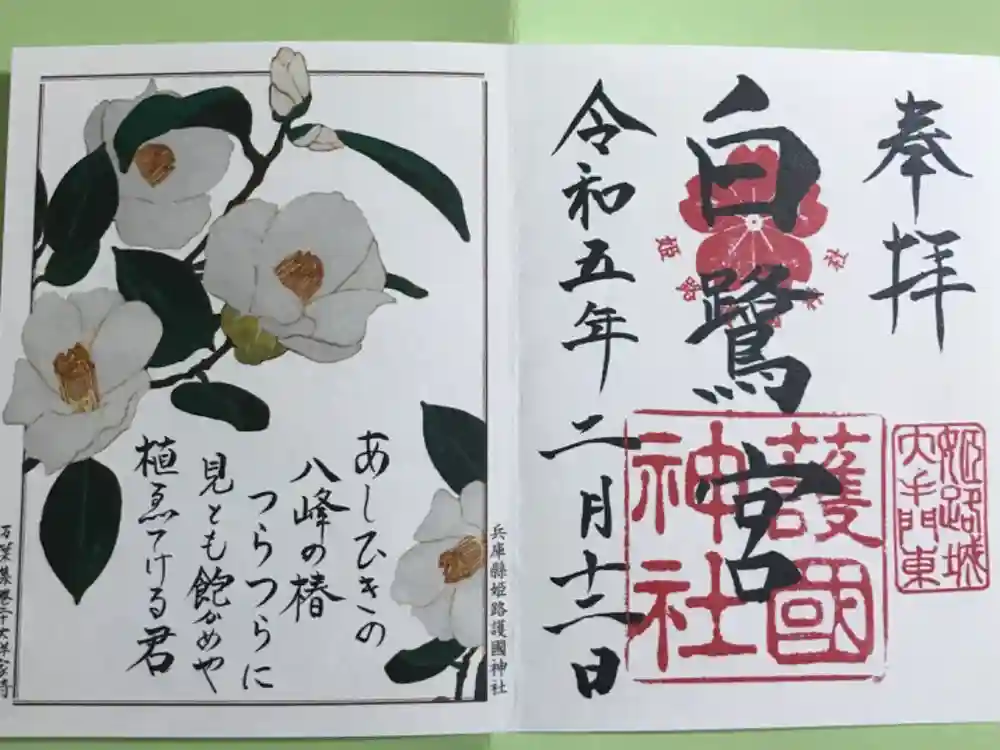 奉拝
姫路城
大手門東
白鷺宮
護國
神社
令和五年二月十二日
兵庫縣姫路護國神社
あしひきの
八峰の椿
つらつらに
見とも飽かめや
植ゑてける君
万葉集巻二十大伴家持